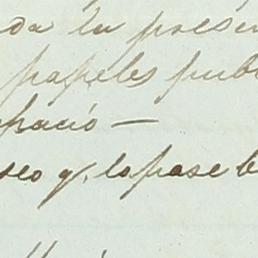 da la presen
papeles pub
spació —
seo q. lo pase b